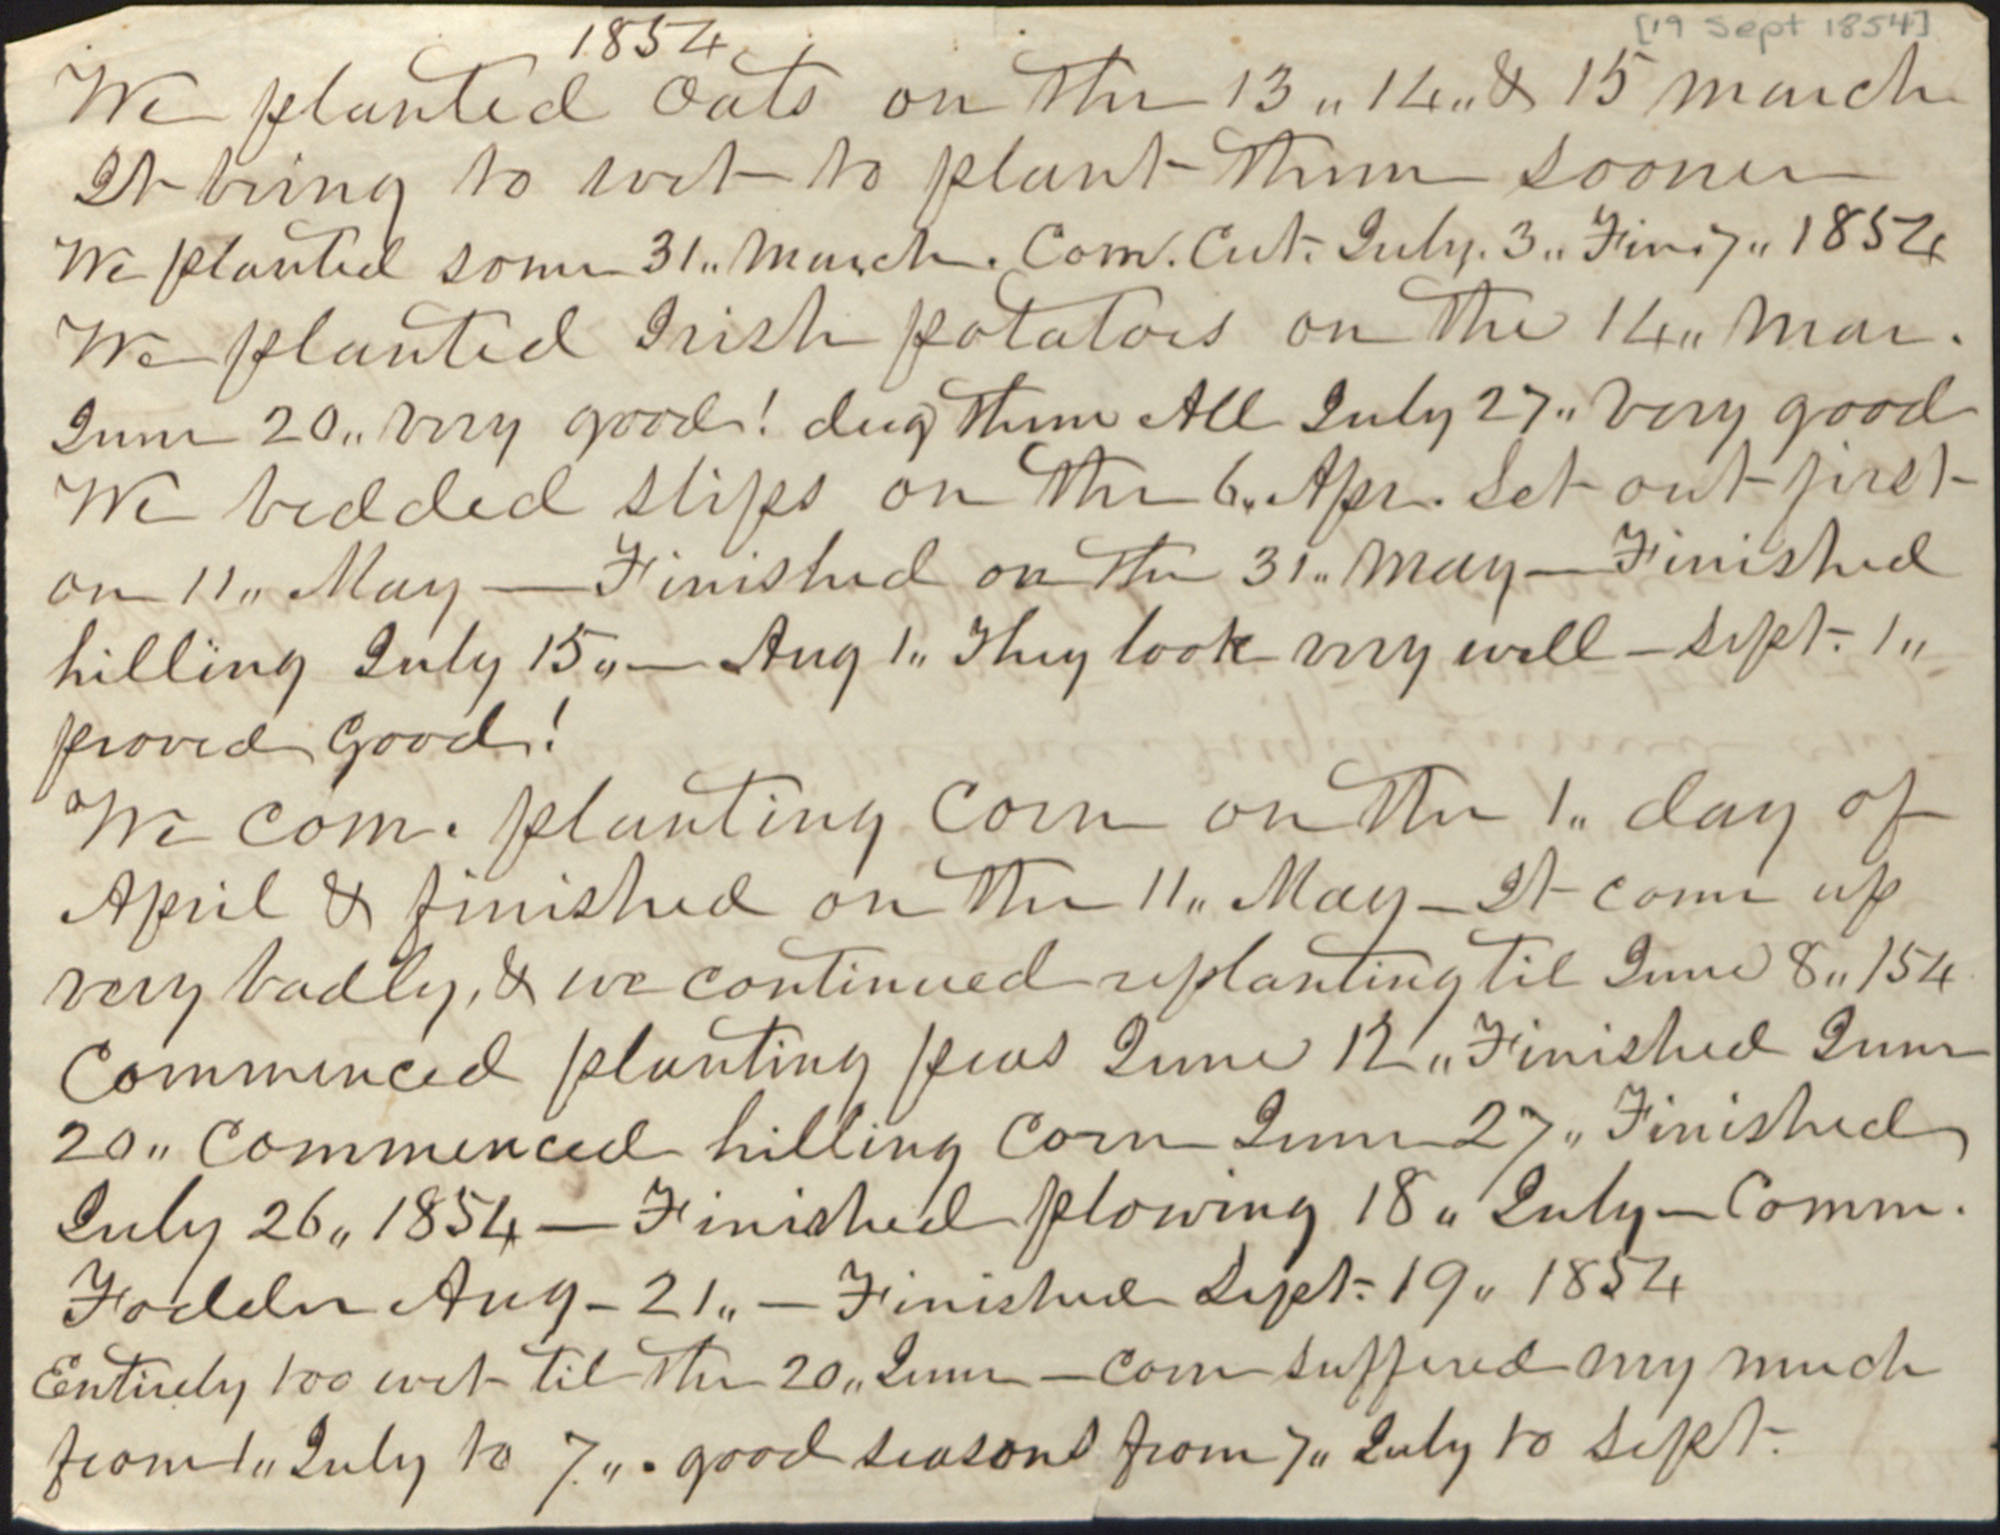 1854
[19 Sept 1854]
We planted Oats on the 13,, 14,, & 15 march
It being to wet to plant them sooner
We planted some 31,, March. Com. Cut. July. 3,, Fini 7,, 1854
We planted Irish potatoes on the 14,, Mar.
June 20,, very good! dug them All July 27,, very good
We bedded slips on the 6,, Apr. Set out first
on 11,, May — Finished on the 31,, May — Finished
hilling July 15,, — Aug 1,, They look very well — Sept. 1,,
proved good!
We com. planting Corn on the 1,, day of
April & finished on the 11,, May — It come up
very badly, & we continued replanting til June 8,, 154
Commenced planting peas June 12,, Finished June
20,, Commenced hilling Corn June 27,, Finished
July 26,, 1854 — Finished plowing 18,, July — Comm.
Fodder Aug - 21,, — Finished Sept. 19,, 1854
Entirely too wet til the 20,, June — corn suffered very much
from 1,, July to 7,,. good seasons from 7,, July to Sept.